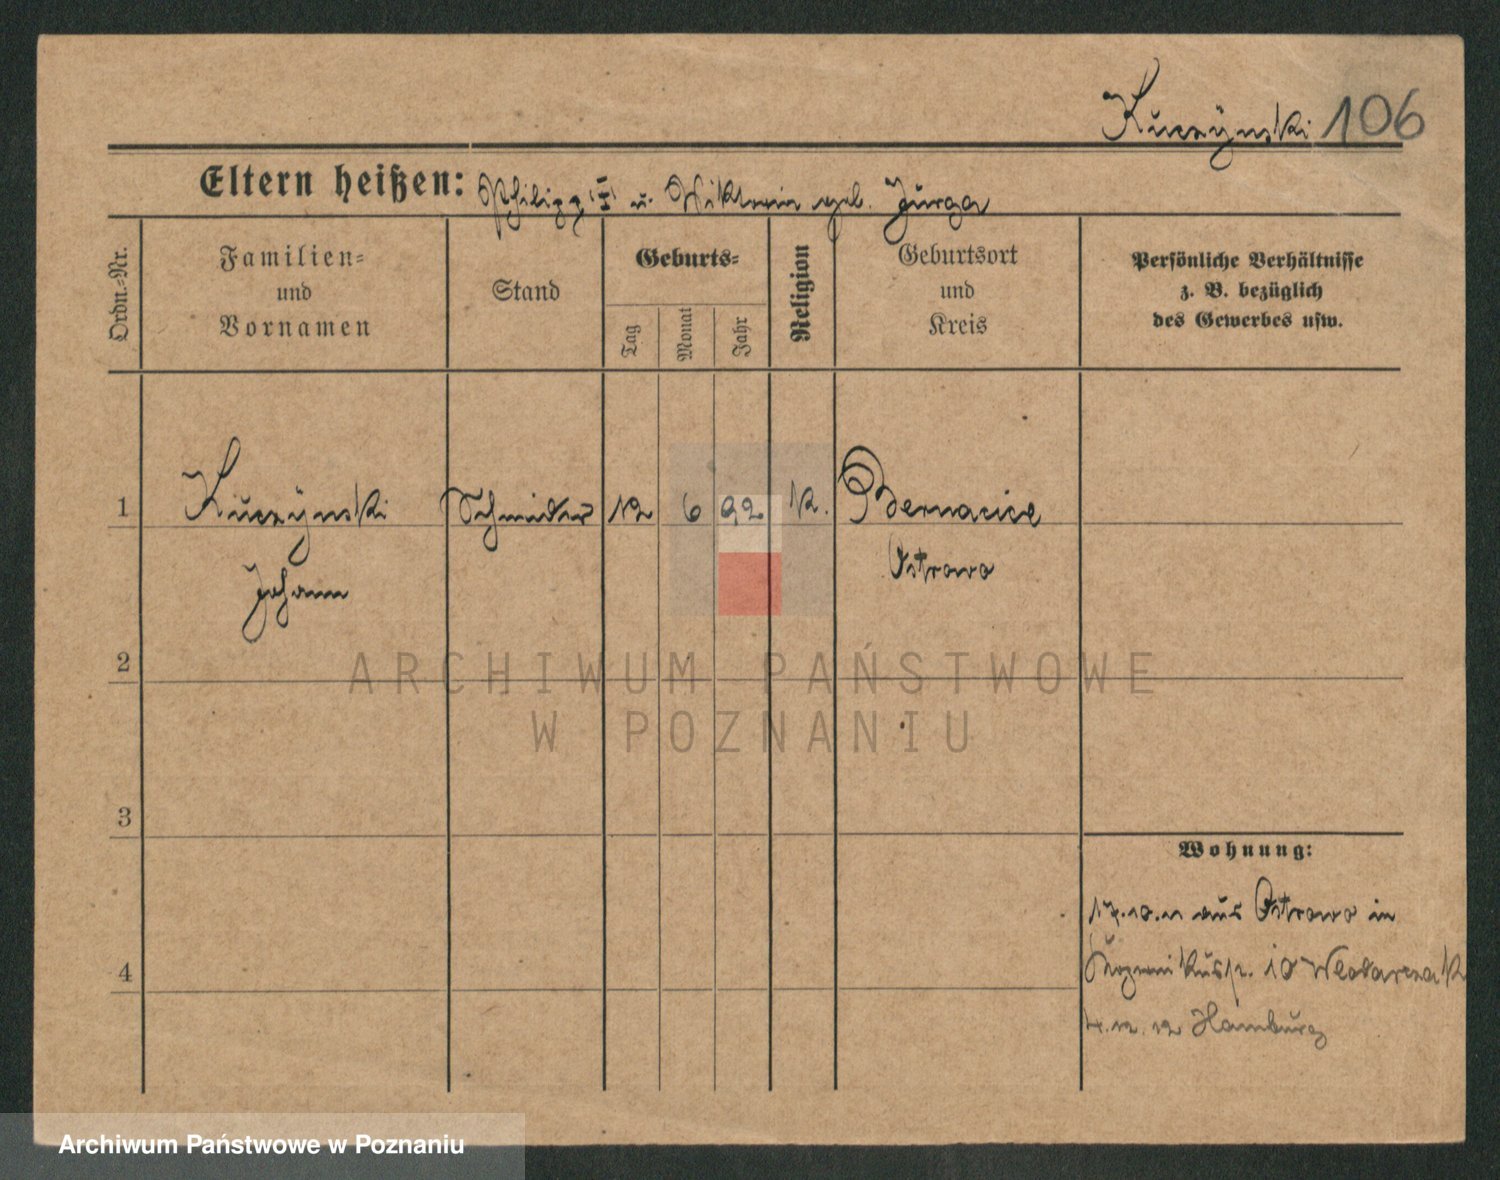 Kuczynski 106
Eltern heißen: Philipp u. Wiktoria geb. Jurga
Ordn.-Nr.
Familien-
und
Vornamen
Stand
Geburts-
Tag
Monat
Jahr
Religion
Geburtsort
und
Kreis
Persönliche Verhältnisse
z. B. bezüglich
des Gewerbes usw.
1 Kuczynski Schmider 12 6 92 k. Bernacice
Johann Ostrowo
2
3
4
Wohnung:
17.10.11 aus Ostrowo in
10
4.12.12 Hamburg
ARCHIWUM PAŃSTWOWE
W POZNANIU
Archiwum Państwowe w Poznaniu